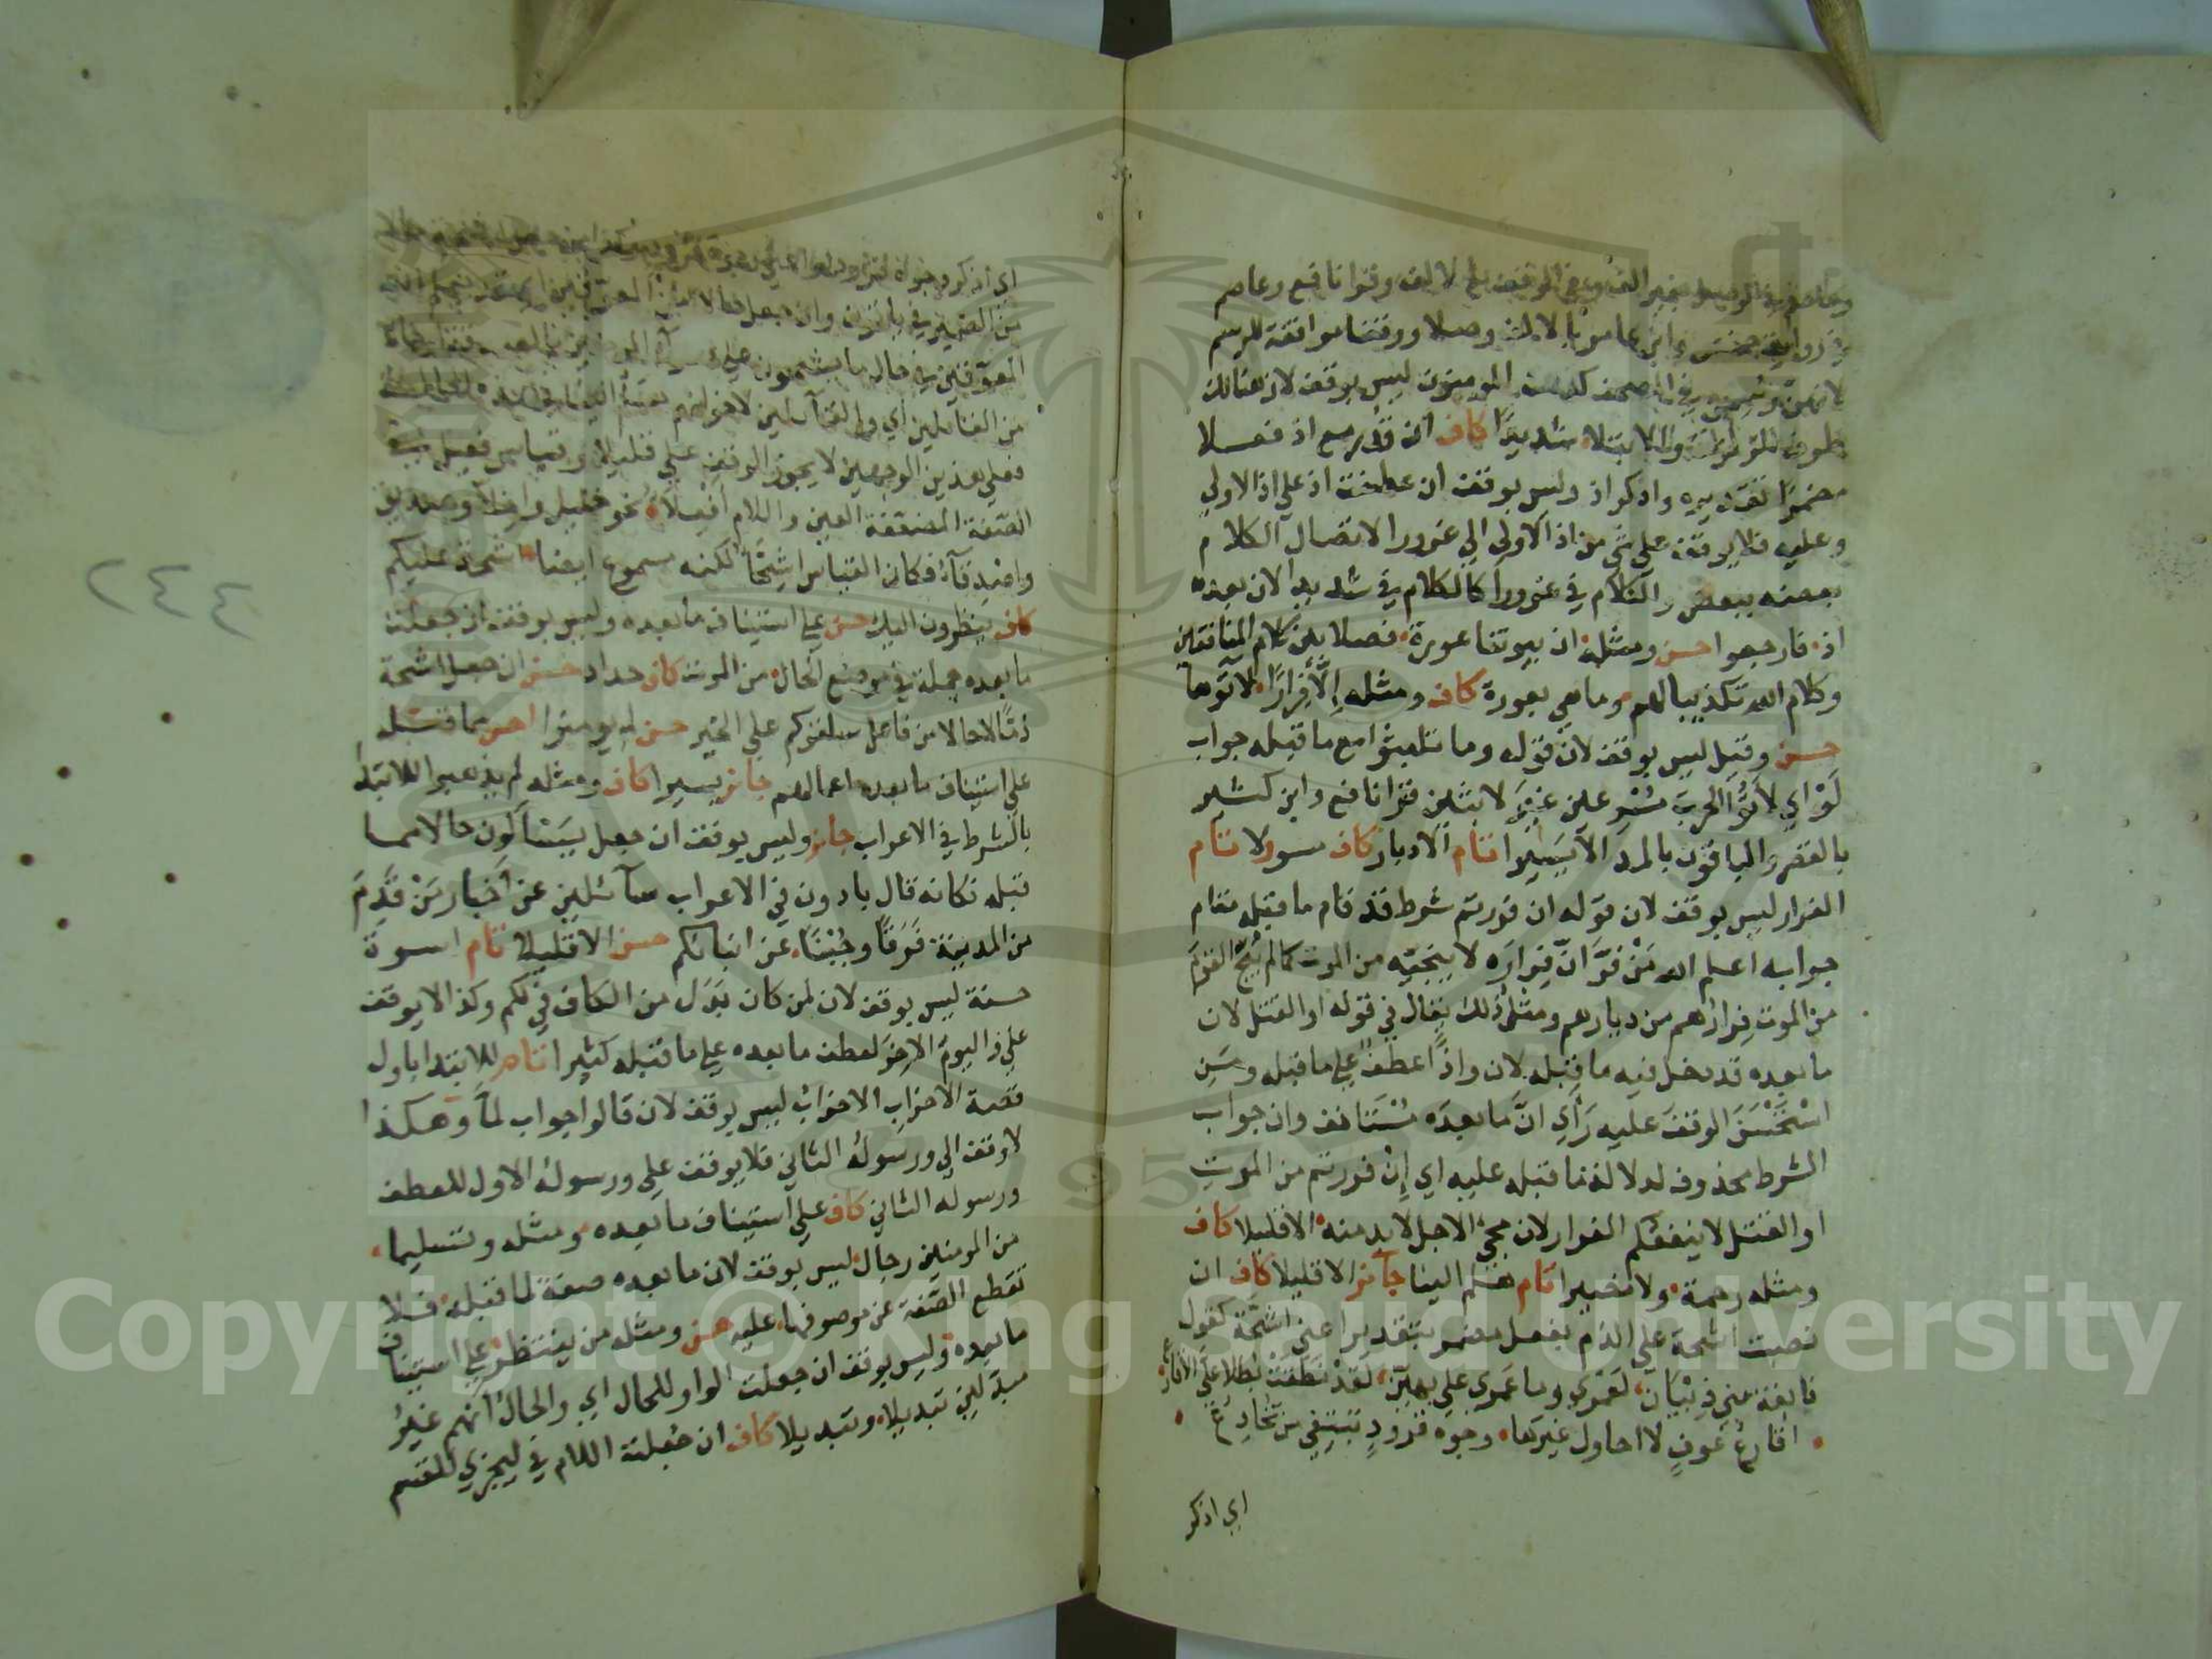 وقرا نافع وعاصم
في رواية وابن عامر بالالف وصلا ووقفا موافقة للرسم
لانهن في المصحف كذلك المومنون ليس بوقف لان هنالك
ظرف للزلزلة والابتلاء شديدا كاف ان قدر مع اذ فعلا
مضمرا تقديره واذكر اذ وليس بوقف ان عطفت اذ علي اذ الاولي
وعليه فلا يوقف علي شي من اذ الاولي الي غرورا لاتصال الكلام
بعضه ببعض والكلام في غرورا كالكلام في شديدا لان بعده
اذ فارجعوا حسن ومثله ان بيوتنا عورة فصلا بين كلام المنافقين
وكلام الله تكذيبا لهم وما هي بعورة كاف ومثله إلّا فِرارًا لاتوها
حسن وقيل ليس بوقف لان قوله وما تلبثوا مع ما قبله جواب
لَوْ اي لاتوا الحرب مسرعين غير لابثين قرا نافع وابن كثير
بالقصر والباقون بالمد الا يسيرا تام الادبار كاف مسولا تام
الفرار ليس بوقف لان قوله ان فررتم شرط قد قام ما قبله مقام
جوابه اعلم الله مَنْ فرّ انّ فِراره لا ينجيه من الموت كما لم يُنج القوم
من الموت فِرارُهم من ديارهم ومثل ذلك يقال في قوله او القتل لان
ما بعده قد دخل فيه ما قبله لان واذًا عطف علي ما قبله ومَنِ
اسْتَحْسَنَ الوقفَ عليه رَأي انَّ ما بعده مُسْتَانف وان جواب
الشرط محذوف لدلالة ما قبله عليه اي إن فررتم من الموت
او القتل لا ينفعكم الفرار لان مجي الاجل لا بد منه الا قليلا كاف
ومثله رحمة ولا نصيرا تام هلم الينا جائز الا قليلا كاف ان
نصبت اشحة علي الذم بفعل مضمر بتقدير اعني اشحة كقول
نابغة بني ذبيان لعمري وما عمري علي بهين لقد نطقت بُطلا علي الاقارع
اقارعُ عَوفٍ لا احاول غيرها وجوه قرودٍ تبتغي من تُجادِعُ
اي اذكر
٢٤٤
اي اذكر وجوه قرود
من الضمير في ياتون وان جعل حالا من المعوقين
المعوقين في حال ما يشحون علي
من القائلين اي والقائلين لاخوانهم
فعلي هذين الوجهين لا يجوز الوقف علي قليلا وقياس فعيل في
الصفة المضعفة العين واللام افعلاء نحو خليل واخلاء وصديق
واصدقاء فكان القياس اشحّاء لكنه مسموع ايضا اشحة عليكم
كاف ينظرون اليك حسن علي استيناف ما بعده وليس بوقف ان جعلت
ما بعده جملة في موضع الحال من الموت كاف حداد حسن ان جعل اشحة
ذمًّا لا حالا من فاعل سلقوكم علي الخير حسن لم يومنوا احسن مما قبله
علي استيناف ما بعده اعمالهم جائز يسيرا كاف ومثله لم يذهبوا للابتداء
بالشرط في الاعراب جائز وليس بوقف ان جعل يسئالون حالا مما
قبله فكانه قال بادون في الاعراب سائلين عن اخبار مَنْ قَدِمَ
من المدينة فَرَقًا وجُبْنًا عن انبائكم حسن الا قليلا تام اسوة
حسنة ليس بوقف لان لمن كان بَدَل من الكاف في لكم وكذا لا يوقف
علي واليوم الاخر لعطف ما بعده علي ما قبله كثيرا تام للابتدا باول
قصة الاحزاب الاحزاب ليس بوقف لان قالوا جواب لمّا وهكذا
لا وقف الي ورسوله الثاني فلا يوقف علي ورسوله الاول للعطف
ورسوله الثاني كاف علي استيناف ما بعده ومثله وتسليما
من المومنين رجال ليس بوقف لان ما بعده صفة لما قبله فلا
تقطع الصفة عن موصوفها عليه حسن ومثله من ينتظر علي استيناف
ما بعده وليس بوقف ان جعلت الواو للحال اي والحال انهم غير
مبدلين تبديلا وتبديلا كاف ان جعلت اللام في ليجزي للقسم
Copyright © King Saud University
1957